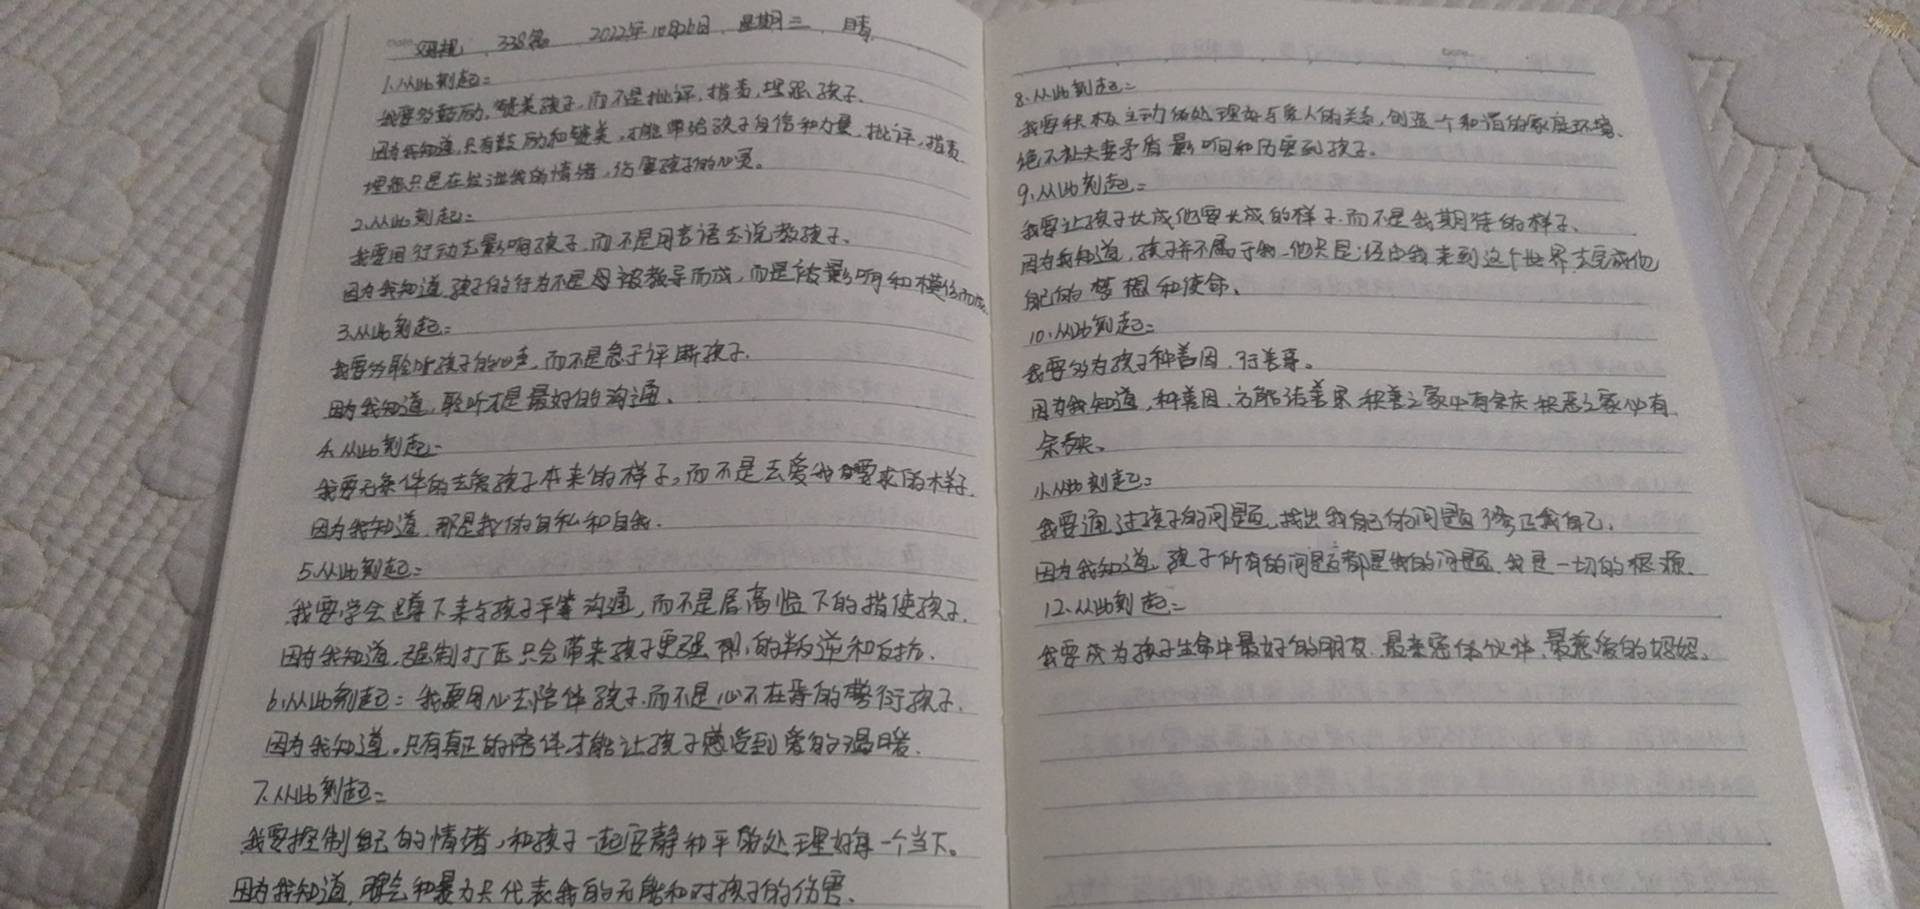 338名 2022年10月26日 星期三 晴
1.从此刻起：
我要多鼓励，赞美孩子，而不是批评，指责，埋怨孩子。
因为我知道，只有鼓励和赞美，才能带给孩子自信和力量，批评，指责，
埋怨只是在发泄我的情绪，伤害孩子的心灵。
2.从此刻起：
我要用行动去影响孩子，而不是用言语去说教孩子、
因为我知道，孩子的行为不是被教导而成，而是被影响和模仿而成。
3.从此刻起：
我要多聆听孩子的心声，而不是急于评断孩子.
因为我知道，聆听才是最好的沟通、
4.从此刻起：
我要无条件的去爱孩子本来的样子，而不是去爱我要求的样子.
因为我知道，那是我的自私和自我.
5.从此刻起：
我要学会蹲下来与孩子平等沟通，而不是居高临下的指使孩子.
因为我知道，强制打压只会带来孩子更强烈的叛逆和反抗.
6.从此刻起：我要用心去陪伴孩子.而不是心不在焉的敷衍孩子.
因为我知道。只有真正的陪伴才能让孩子感受到爱的温暖.
7.从此刻起：
我要控制自己的情绪，和孩子一起安静和平的处理好每一个当下。
因为我知道，和暴力只代表我的无能和对孩子的伤害、
8.从此刻起：
我要积极主动的处理好与家人的关系，创造一个和谐的家庭环境、
绝不让夫妻矛盾影响和伤害到孩子.
9.从此刻起：
我要让孩子长成他要长成的样子.而不是我期待的样子、
因为我知道，孩子并不属于我-他只是经由我来到这个世界去完成他
自己的梦想和使命、
10.从此刻起：
我要多为孩子种善因、行善事。
因为我知道，种善因、方能结善果 积善之家必有余庆 积恶之家必有
余殃、
11.从此刻起：
我要通过孩子的问题，找出我自己的问题 修正我自己.
因为我知道，孩子所有的问题都是我的问题、我是一切的根源.
12.从此刻起：
我要成为孩子生命中最好的朋友、最亲密伙伴、最慈爱的妈妈、